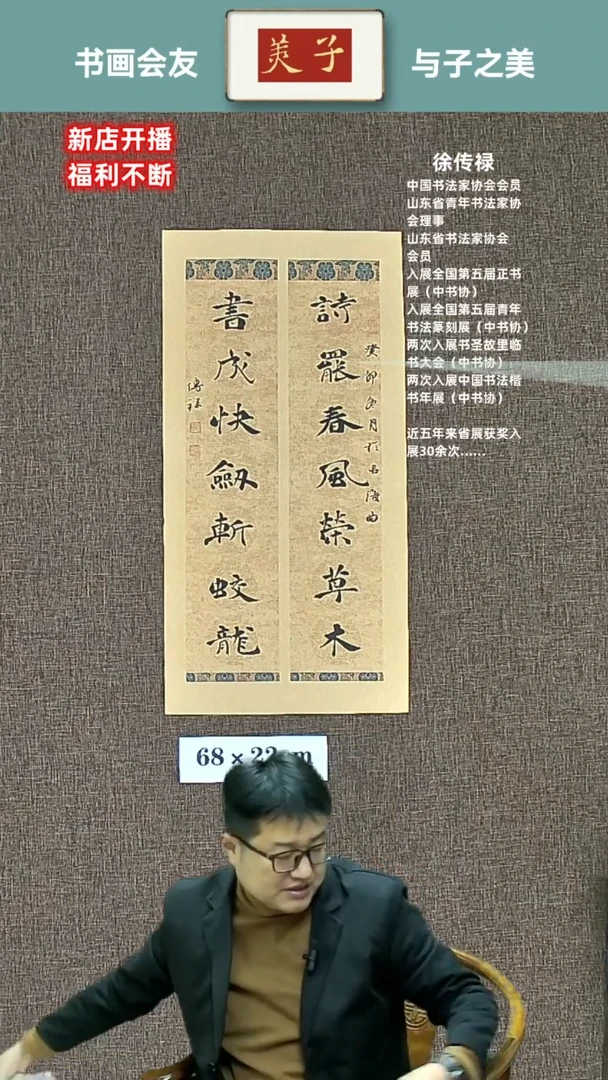 书画会友
子羙
与子之美
新店开播
福利不断
徐传禄
中国书法家协会会员
山东省青年书法家协
会理事
山东省书法家协会
会员
入展全国第五届正书
展（中书协）
入展全国第五届青年
书法篆刻展（中书协）
两次入展书圣故里临
书大会（中书协）
两次入展中国书法楷
书年展（中书协）
近五年来省展获奖入
展30余次……
詩罷春風榮草木
癸卯冬月於
書成快劔斬蛟龍
傳祿
68×22